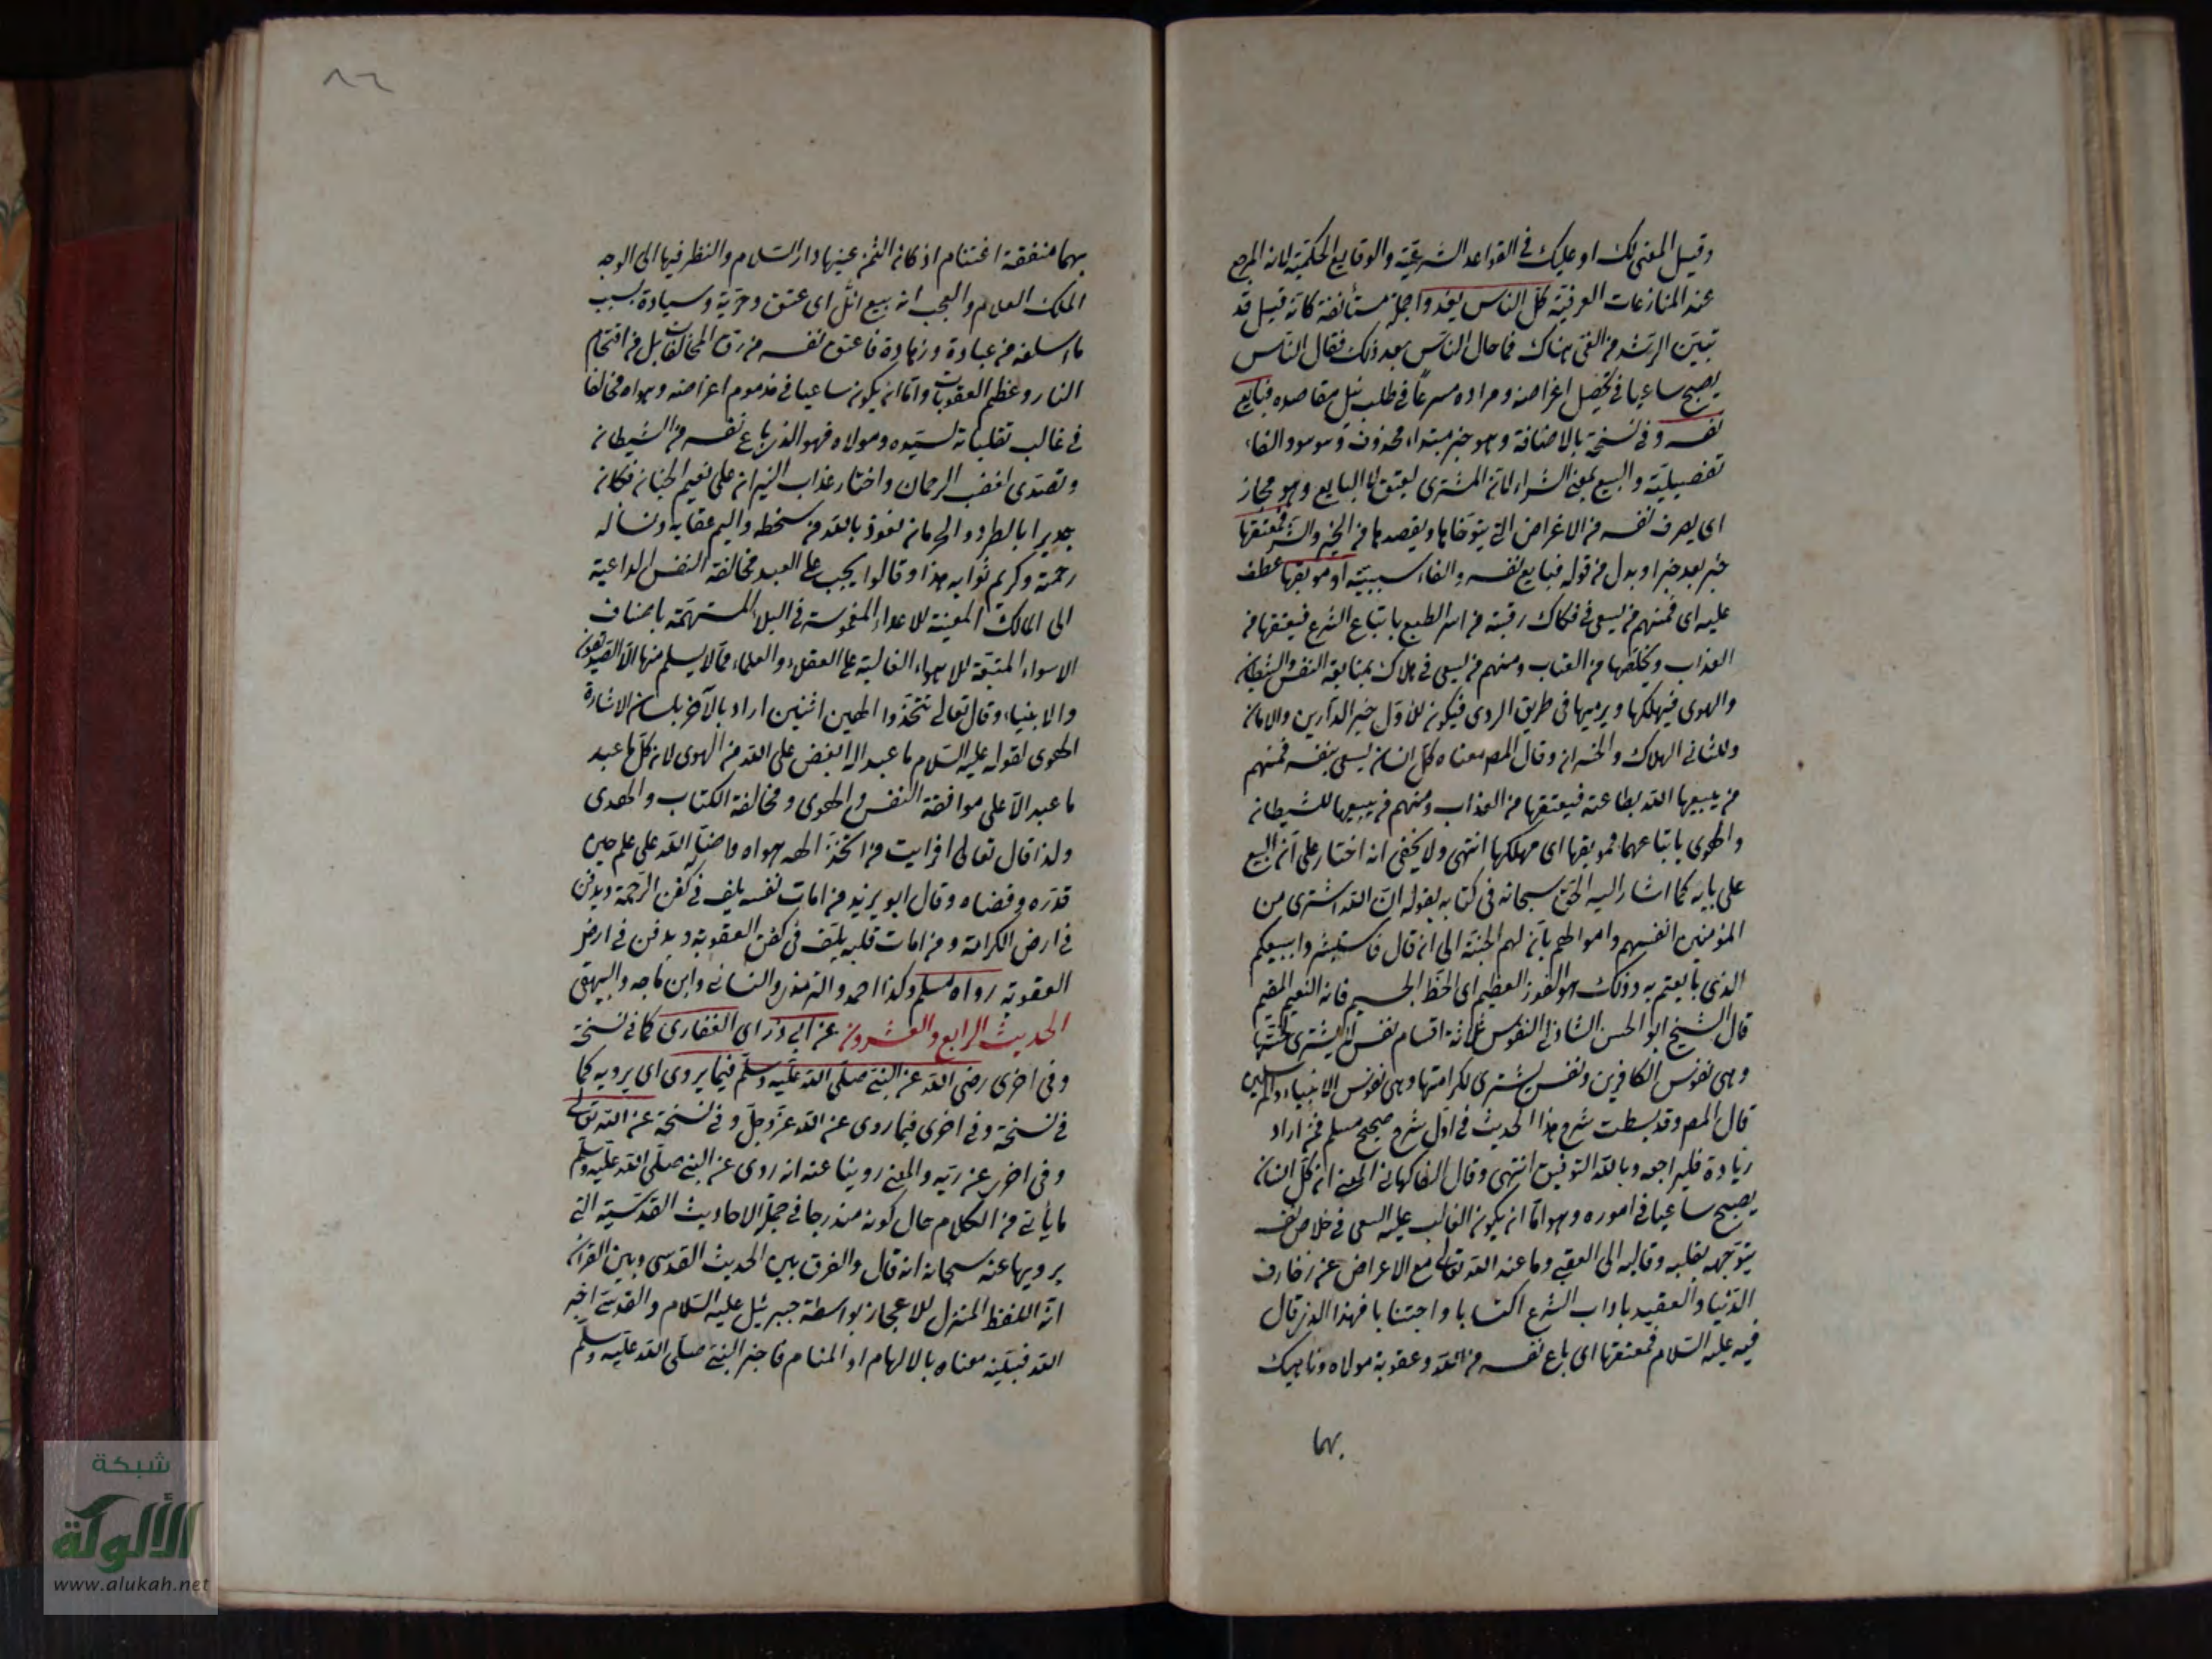 وقيل المعنى لك او عليك في القواعد الشرعية والوقايع الحكمية لانه المرجع
عند المنازعات العرفية كل الناس يغدوا جملة مستأنفة كانه قيل قد
تبين الرشد من الغي هناك فما حال الناس بعد ذلك فقال الناس
يصبح ساعيا في تحصيل اغراضه ومراده مسرعا في طلب نيل مقاصده فبايع
نفسه وفي نسخة بالاضافة وهو خبر مبتداء محذوف والفاء
تفصيلية والبيع بمعنى الشراء لان المشترى ليعتق لا البايع وهو مجاز
اى يصرف نفسه من الاغراض التي يتوخاها ويقصدها من الخير والشر فمعتقها
خبر بعد خبر او بدل من قوله فبايع نفسه والفاء سببية او موبقها عطف
عليه اى فمنهم من يسعى في فكاك رقبته من اسر الطبع باتباع الشرع فيعتقها من
العذاب ويخلصها من العقاب ومنهم من يسعى في هلاك بمتابعة النفس والشيطان
والهوى فيهلكها ويرميها في طريق الردى فيكون للاول خير الدارين والامان
وللثاني الهلاك والخسران وقال المص معناه كل انسان يسعى بنفسه فمنهم
من يبيعها الله بطاعته فيعتقها من العذاب ومنهم من يبيعها للشيطان
والهوى باتباعهما فموبقها اى مهلكها انتهى ولا يخفى انه اختار على ان البيع
على بابه كما اشار اليه الحق سبحانه في كتابه بقوله ان الله اشترى من
المؤمنين انفسهم واموالهم بان لهم الجنة الى ان قال فاستبشروا ببيعكم
الذى بايعتم به وذلك هو الفوز العظيم اى الحظ الجسيم فانه النعيم المقيم
قال الشيخ ابو الحسن الشاذلي النفوس ثلاثة اقسام نفس لا يشترى لخستها
وهى نفوس الكافرين ونفس يشترى لكرامتها وهى نفوس الانبياء والمرسلين
قال المص وقد بسطت شرح هذا الحديث في اول شرح صحيح مسلم فمن اراد
زيادة فليراجعه وبالله التوفيق انتهى وقال الفاكهاني المعنى ان كل انسان
يصبح ساعيا في اموره وهو اما ان يكون الغالب عليه السعى في خلاص نفسه
يتوجهه بقلبه وقالبه الى العقبى وما عند الله تعالى مع الاعراض عن زخارف
الدنيا والعقيد باداب الشرع اكتسابا واجتنابا فهذا الذى قال
فيه عليه السلام فمعتقها اى باع نفسه من الله وعقوبة مولاه وناهيك
بهما
بهما منفقة اغتنام اذ كان الثمن عينها دار السلام والنظر فيها الى الوجه
الملك العلام والعجب انه بيع اى عتق وحرية وسيادة بسبب
ما اسلفه من عبادة وزهادة فاعتق نفسه من رق المخالفات بل من اقتحام
النار وعظيم العقوبات واما ان يكون ساعيا في مذموم اعراضه وهواه مخالفا
في غالب تقلباته لسيده ومولاه فهو الذى باع نفسه من الشيطان
وتصدى لغضب الرحمان واختار عذاب النيران على نعيم الجنان فكان
جديرا بالطرد والحرمان نعوذ بالله من سخطه واليم عقابه ونساله
رحمته وكريم ثوابه هذا وقالوا يجب على العبد مخالفة النفس الداعية
الى المهالك المعينة للاعداء المغموسة في البلاء المستهمة باصناف
الاسواء المتبعة للاهواء الغالبة على العقلاء والعلماء فما لا يسلم منها الا الصديقون
والانبياء وقال تعالى لا تتخذوا الهين اثنين اراد بالآخر بلسان الاشارة
الهوى لقوله عليه السلام ما عبد اله ابغض على الله من الهوى لان كل ما عبد
ما عبد الا على موافقة النفس والهوى ومخالفة الكتاب والهدى
ولذا قال تعالى افرايت من اتخذ الهه هواه واضله الله على علم حين
قدره وقضاه وقال ابو يزيد من امات نفسه يلف في كفن الرحمة ويدفن
في ارض الكرامة ومن امات قلبه يلف في كفن العقوبة ويدفن في ارض
العقوبة رواه مسلم وكذا احمد والترمذى والنسائي وابن ماجه والبيهقى
الحديث الرابع والعشرون عن ابى ذر اى الغفارى كما في نسخة
وفي اخرى رضى الله عنه عن النبي صلى الله عليه وسلم فيما يروى اى يرويه كما
في نسخة وفي اخرى فيما روى عن الله عز وجل وفي نسخة عن الله تعالى
وفي اخرى عن ربه والمعنى روينا عنه انه روى عن النبي صلى الله عليه وسلم
ما يأتي من الكلام حال كونه مندرجا في جملة الاحاديث القدسية التي
يرويها عنه سبحانه انه قال والفرق بين الحديث القدسى وبين القرآن
انه اللفظ المنزل للاعجاز بواسطة جبرئيل عليه السلام والقدسى اخبر
الله نبيه معناه بالالهام او المنام فاخبر النبي صلى الله عليه وسلم
شبكة
الألوكة
www.alukah.net